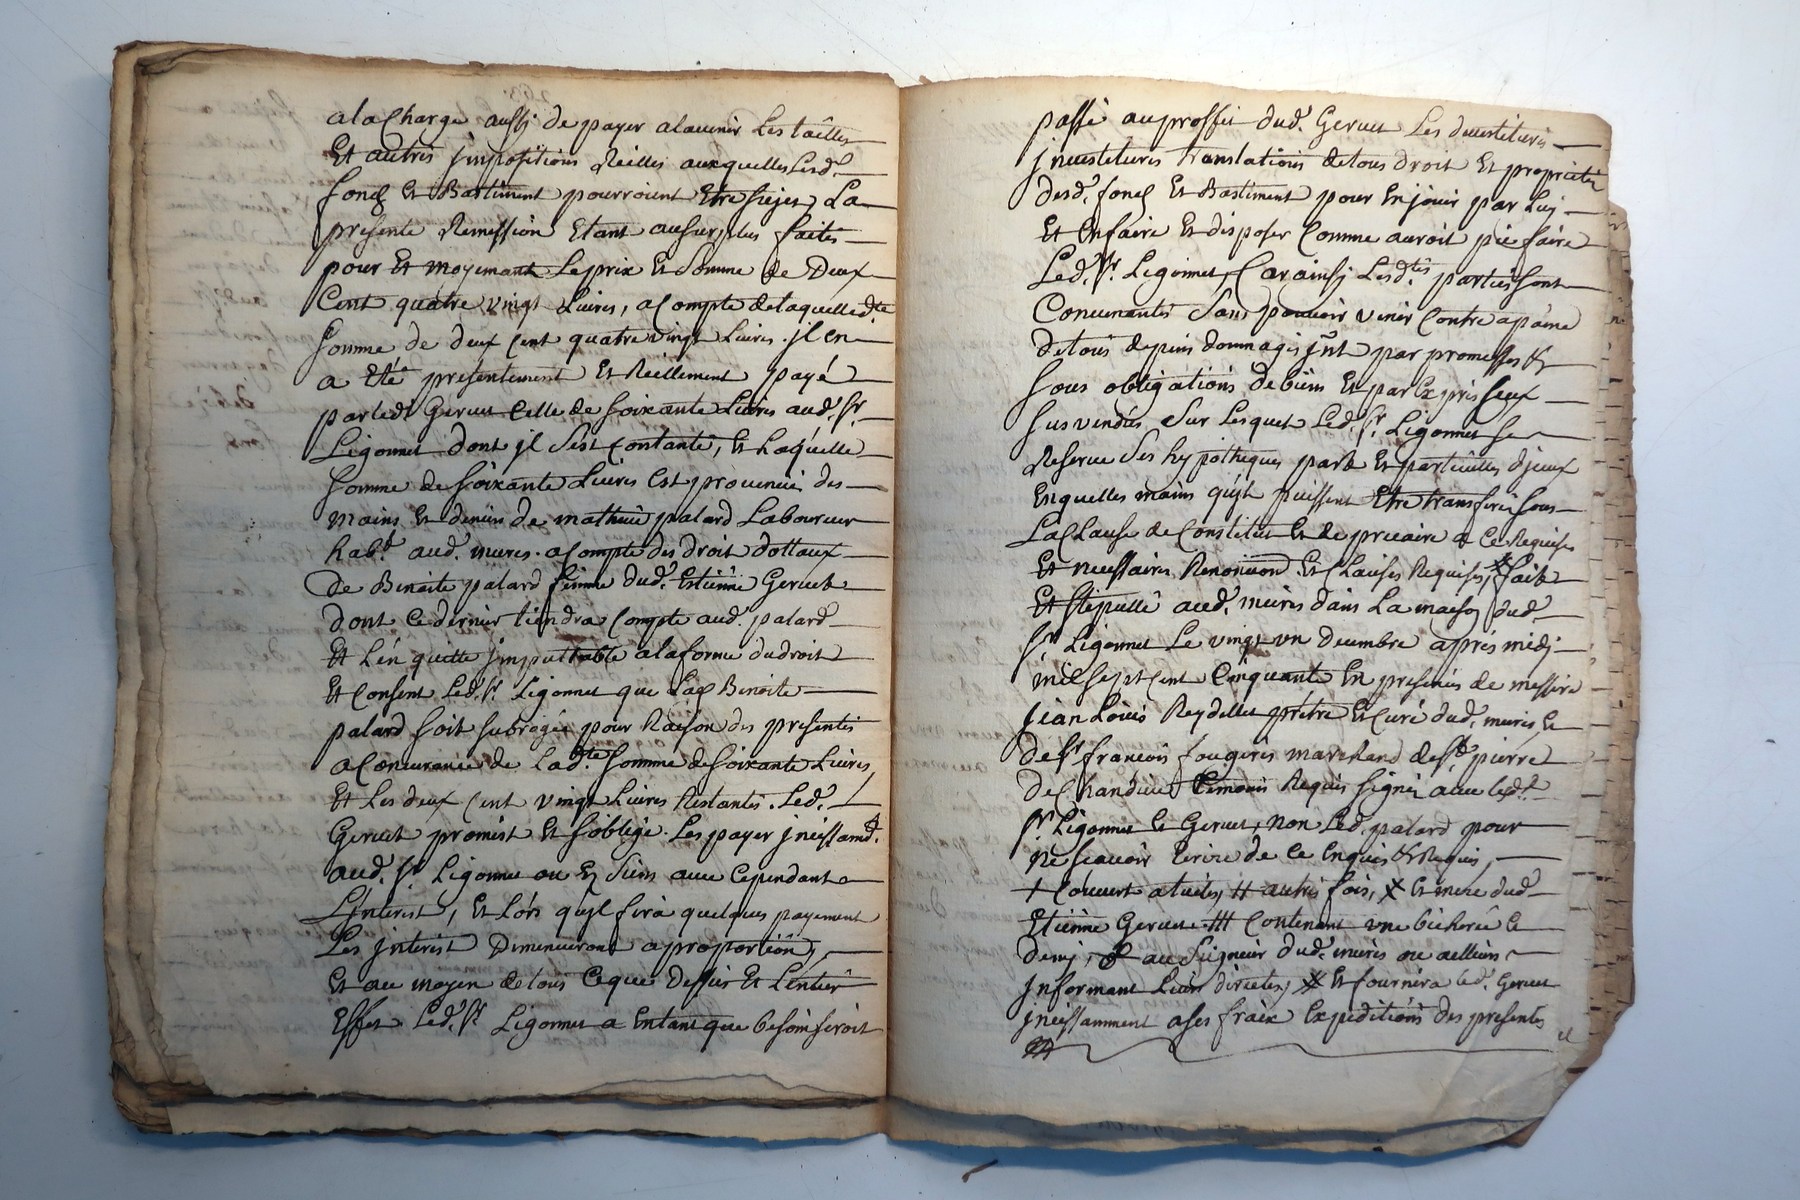 a la Charge aussy de payer alavenir Les tailles
Et autres jmpositions Réelles auxquelles Lesd.
fond Et Bastiment pourroient Etre sujet, La
presente Remission Etant ausurplus faite
pour Et moyenant Le prix Et Somme de Deux
Cent quatre vingt Livres, a Compte de laquelle dte
Somme de deux Cent quatre vingt Livres jl en
a Eté presentement Et Réellement payé
par ledt Gervet Celle de Soixante Livres aud. Sr.
Ligonnet dont jl S'est Contanté, Et Laquelle
Somme de Soixante Livres Est provenüe des
mains Et deniers de mathieu palard Laboureur
habt. aud. mures. a Compte des droit dottaux
De Benoite palard femme dud. Estienne Gervet
dont Ce dernier tiendra Compte aud. palard
Et L'en quitte jmputtable a la forme du droit
Et Consent Led. Sr. Ligonnet que Lad Benoite
palard Soit Subrogée pour Raison des presentes
a Concurance de Ladte. Somme de Soixante Livres,
Et Les deux Cent vingt Livres Restantes. Led.
Gervet promest Et S'oblige. Les payer jncessamt.
aud. Sr. Ligonnet ou Es Siens avec Cependant
L'jnterist, Et Lors qu'jl fera quelques payement
Les jnterist Diminueront a proportion,
Et au moyen de tous Ce que Dessus Et L'entier
Effet Led. Sr. Ligonnet a Entant que besoin Seroit
passé au proffit dud. Gervet Les devestitures
jnvestitures translations de tous droit Et proprieté
desd. fond Et Bastiment pour En jouir par Luy
Et En faire Et disposer Comme auroit pü faire
Led. Sr. Ligonnet, Car ainsy Lesd.tes parties Sont
Convenantes Sans pouvoir venir Contre apaine
de tous depens dommages jnt par promesses &
Sous obligations de biens Et par Exprès Ceux
Sus vendus, Sur Lesquet Led. Sr. Ligonnet Se
Reserve Ses hypotheques part Et particulles d'jceux
En quelles mains qu'jls puissent Etre transferé Sous
La Clause de Constitut Et de precaire a Ce Requises
Et necessaires Renonciaon Et Clauses Requises, fait
Et Stipullé aud. mures dans La maison dud.
Sr. Ligonnet Le vingt un Decembre après midj
mil Sept Cent Cinquante En presences de messire
jean Loüis Reydellet prêtre Et Curé dud. mures, Et
de Sr. francois fougeres marchand de St. pierre
de Chandieu temoins Requis Signés avec Lesdt.
Sr. Ligonnet Et Gervet, non Led. palard pour
ne Scavoir Ecrire de Ce Enquis & Requis,
+ Couvert a tuiles, ++ autres fois, X Et mere dud
Etienne Gervet. +++ Contenant une bicherée Et
demj, au Seigneur dud. mures ou allieurs
jnformant Leurs directes, X Et fournira Led. Gervet
jncessamment a Ses fraix Expeditions des presentes